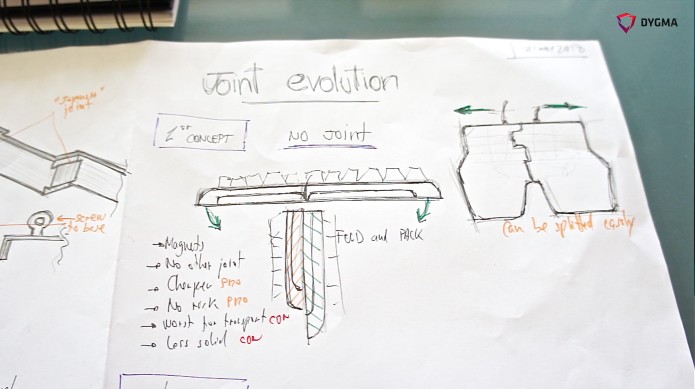 DYGMA
Joint evolution
"Japanese"
joint
1st CONCEPT
NO JOINT
← screw
to base
FOLD and PACK
can be splitted easily
→ Magnets
→ No other joint
→ Cheaper PRO
→ No risk PRO
→ Worst for transport CON
→ Less solid CON